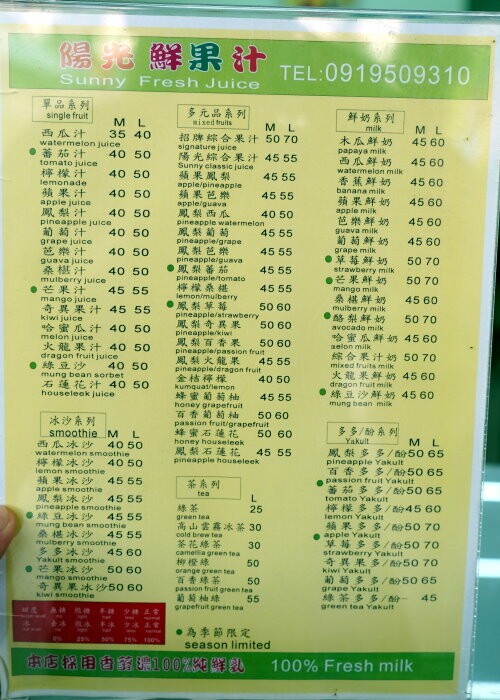 陽光鮮果汁
Sunny Fresh Juice
TEL:0919509310
單品系列
single fruit
M L
西瓜汁 35 40
watermelon juice
蕃茄汁 40 50
tomato juice
檸檬汁 40 50
lemonade
蘋果汁 40 50
apple juice
鳳梨汁 40 50
pineapple juice
葡萄汁 40 50
grape juice
芭樂汁 40 50
guava juice
桑椹汁 40 50
mulberry juice
芒果汁 45 55
mango juice
奇異果汁 45 55
kiwi juice
哈蜜瓜汁 40 50
melon juice
火龍果汁 40 50
dragon fruit juice
綠豆沙 40 50
mung bean sorbet
石蓮花汁 40 50
houseleek juice
冰沙系列
smoothie
M L
西瓜冰沙 40 50
watermelon smoothie
檸檬冰沙 40 50
lemon smoothie
蘋果冰沙 45 55
apple smoothie
鳳梨冰沙 45 55
pineapple smoothie
綠豆冰沙 45 55
mung bean smoothie
桑椹冰沙 45 55
mulberry smoothie
多多冰沙 45 60
Yakult smoothie
芒果冰沙 50 60
mango smoothie
奇異果冰沙 50 60
kiwi smoothie
多元品系列
mixed fruits
M L
招牌綜合果汁 50 70
signature juice
陽光綜合果汁 45 55
Sunny classic juice
蘋果鳳梨 45 55
apple/pineapple
蘋果芭樂 45 55
apple/guava
鳳梨西瓜 40 50
pineapple watermelon
鳳梨葡萄 45 55
pineapple/grape
鳳梨芭樂 45 55
pineapple/guava
鳳梨蕃茄 45 55
pineapple/tomato
檸檬桑椹 45 55
lemon/mulberry
鳳梨草莓 50 60
pineapple/strawberry
鳳梨奇異果 50 60
pineapple/kiwi
鳳梨百香果 50 60
pineapple/passion fruit
鳳梨火龍果 45 55
pineapple/dragon fruit
金桔檸檬 40 50
kumquat/lemon
蜂蜜葡萄柚 45 55
honey grapefruit
百香葡萄柚 50 60
passion fruit/grapefruit
蜂蜜石蓮花 50 60
honey houseleek
鳳梨石蓮花 45 55
pineapple houseleek
茶系列
tea
L
綠茶 25
green tea
高山雲霧冰茶 30
cold brew tea
茶花綠茶 30
camellia green tea
柳橙綠 50
orange green tea
百香綠茶 50
passion fruit green tea
葡萄柚綠 55
grapefruit green tea
為季節限定
season limited
鮮奶系列
milk
M L
木瓜鮮奶 45 60
papaya milk
西瓜鮮奶 45 60
watermelon milk
香蕉鮮奶 45 60
banana milk
蘋果鮮奶 45 60
apple milk
芭樂鮮奶 45 60
guava milk
葡萄鮮奶 45 60
grape milk
草莓鮮奶 50 70
strawberry milk
芒果鮮奶 50 70
mango milk
桑椹鮮奶 45 60
mulberry milk
酪梨鮮奶 50 70
avocado milk
哈蜜瓜鮮奶 45 60
melon milk
綜合果汁鮮奶 50 70
mixed fruits milk
火龍果鮮奶 45 60
dragon fruit milk
綠豆沙鮮奶 45 60
mung bean milk
多多/酚系列
Yakult
M L
鳳梨多多/酚 50 65
pineapple Yakult
百香多多/酚 50 65
passion fruit Yakult
蕃茄多多/酚 50 65
tomato Yakult
檸檬多多/酚 45 60
lemon Yakult
蘋果多多/酚 50 70
apple Yakult
草莓多多/酚 50 70
strawberry Yakult
奇異果多多/酚 50 70
kiwi Yakult
葡萄多多/酚 50 65
grape Yakult
綠茶多多/酚 45
green tea Yakult
甜度 無糖 微糖 半糖 少糖 正常
冰 去冰 微冰 半冰 少冰 正常
0% 25% 50% 75% 100%
本店採用香醇濃100%純鮮乳
100% Fresh milk